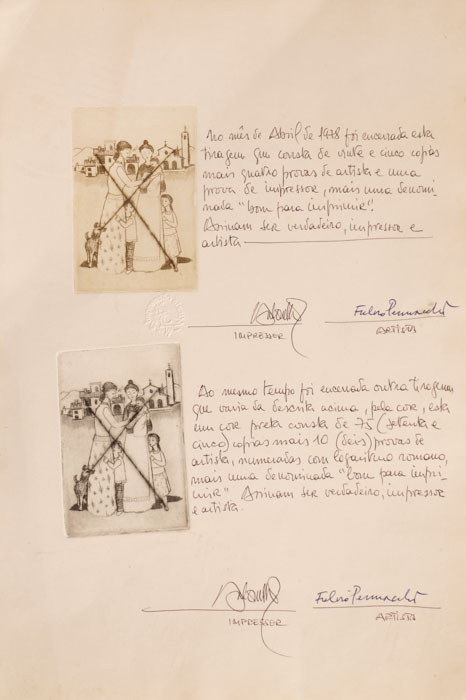 No mês de Abril de 1978 foi encerrada esta
tiragem que consta de vinte e cinco copias
mais quatro provas de artista e uma
prova de impressor, mais uma denomi
nada "bom para imprimir".
Assinam ser verdadeiro, impressor e
artista
Fulvio Pennacchi
IMPRESSOR
ARTISTA
Ao mesmo tempo foi encerrada outra tiragem
que varia da descrita acima, pela cor, esta
em cor preta consta de 75 (setenta e
cinco) copias mais 10 (deis) provas de
artista, numeradas com logaritmo romano,
mais uma denominada "bom para impri
mir" Assinam ser verdadeiro, impressor
e artista.
Fulvio Pennacchi
IMPRESSOR
ARTISTA